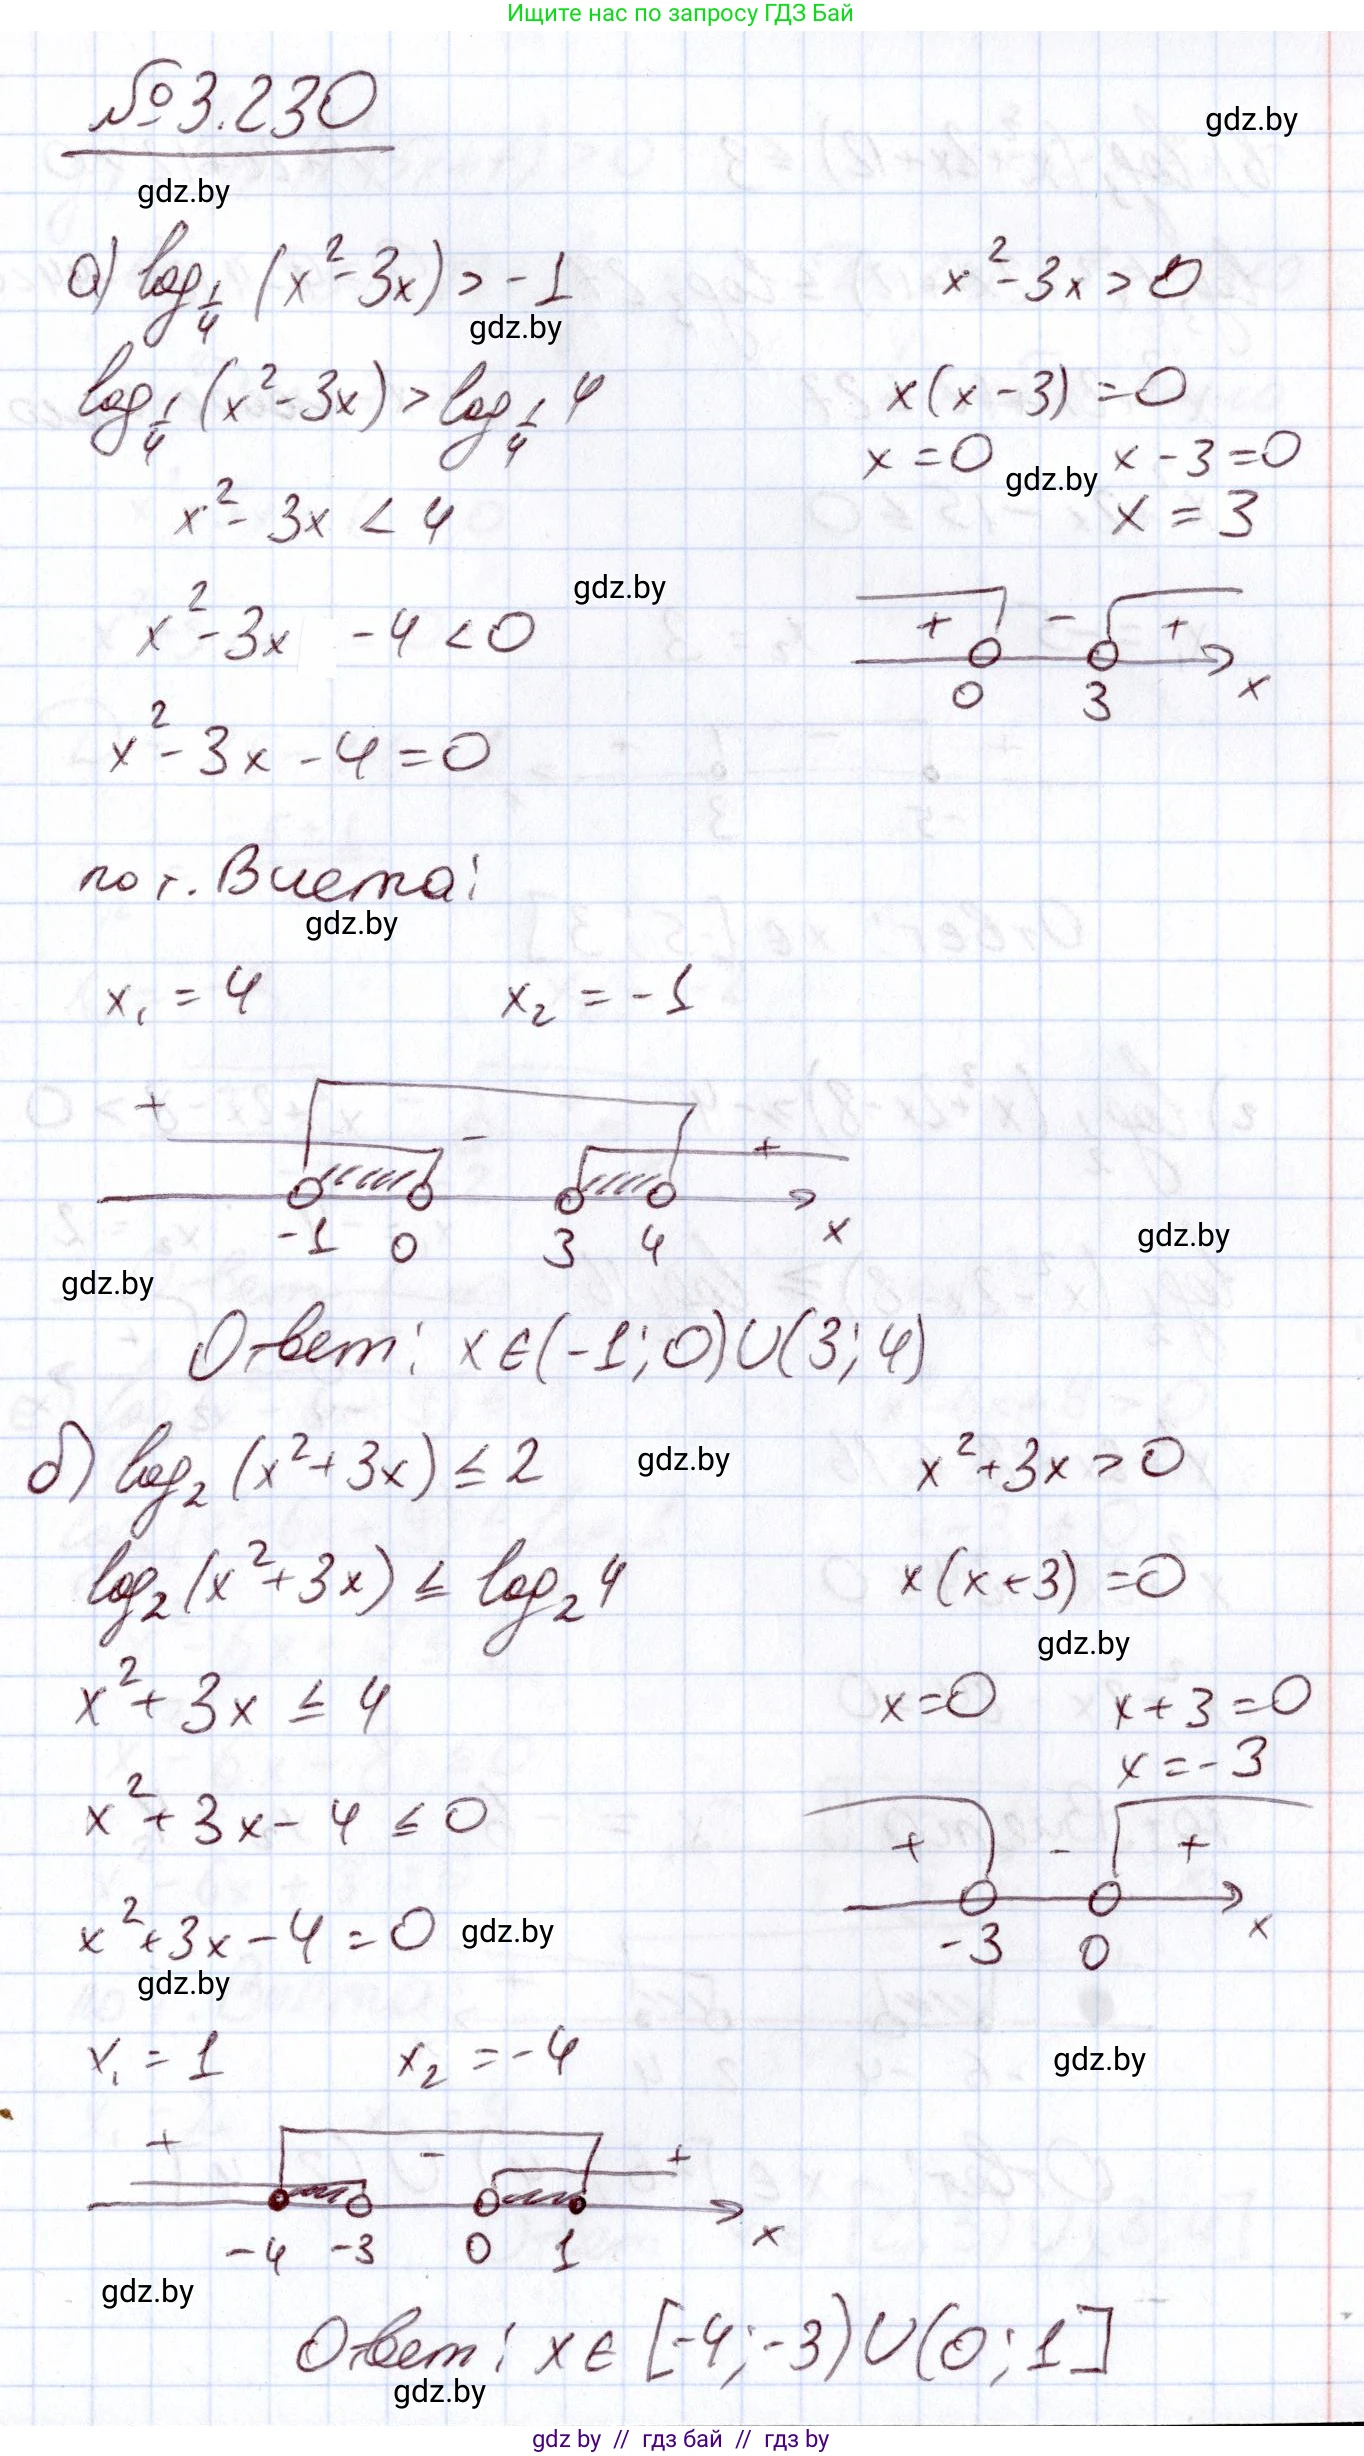 Ищите нас по запросу ГДЗ Бай
№ 3.230
gdz.by
gdz.by
а) log_{1/4} (x² - 3x) > -1
x² - 3x > 0
gdz.by
log_{1/4} (x² - 3x) > log_{1/4} 4
x(x - 3) = 0
x = 0 gdz.by x - 3 = 0
x² - 3x < 4
x = 3
gdz.by
x² - 3x - 4 < 0
+ - +
0 3 x
x² - 3x - 4 = 0
по т. Виета:
gdz.by
x₁ = 4 x₂ = -1
+ - +
-1 0 3 4 x
gdz.by
gdz.by
Ответ: x ∈ (-1; 0) ∪ (3; 4)
б) log₂ (x² + 3x) ≤ 2 gdz.by
x² + 3x > 0
log₂ (x² + 3x) ≤ log₂ 4
x(x + 3) = 0
gdz.by
x² + 3x ≤ 4
x = 0 x + 3 = 0
x = -3
x² + 3x - 4 ≤ 0
+ - +
-3 0 x
x² + 3x - 4 = 0 gdz.by
gdz.by
x₁ = 1 x₂ = -4
gdz.by
+ - +
-4 -3 0 1 x
gdz.by
Ответ: x ∈ [-4; -3) ∪ (0; 1]
gdz.by
gdz.by // гдз бай // гдз by